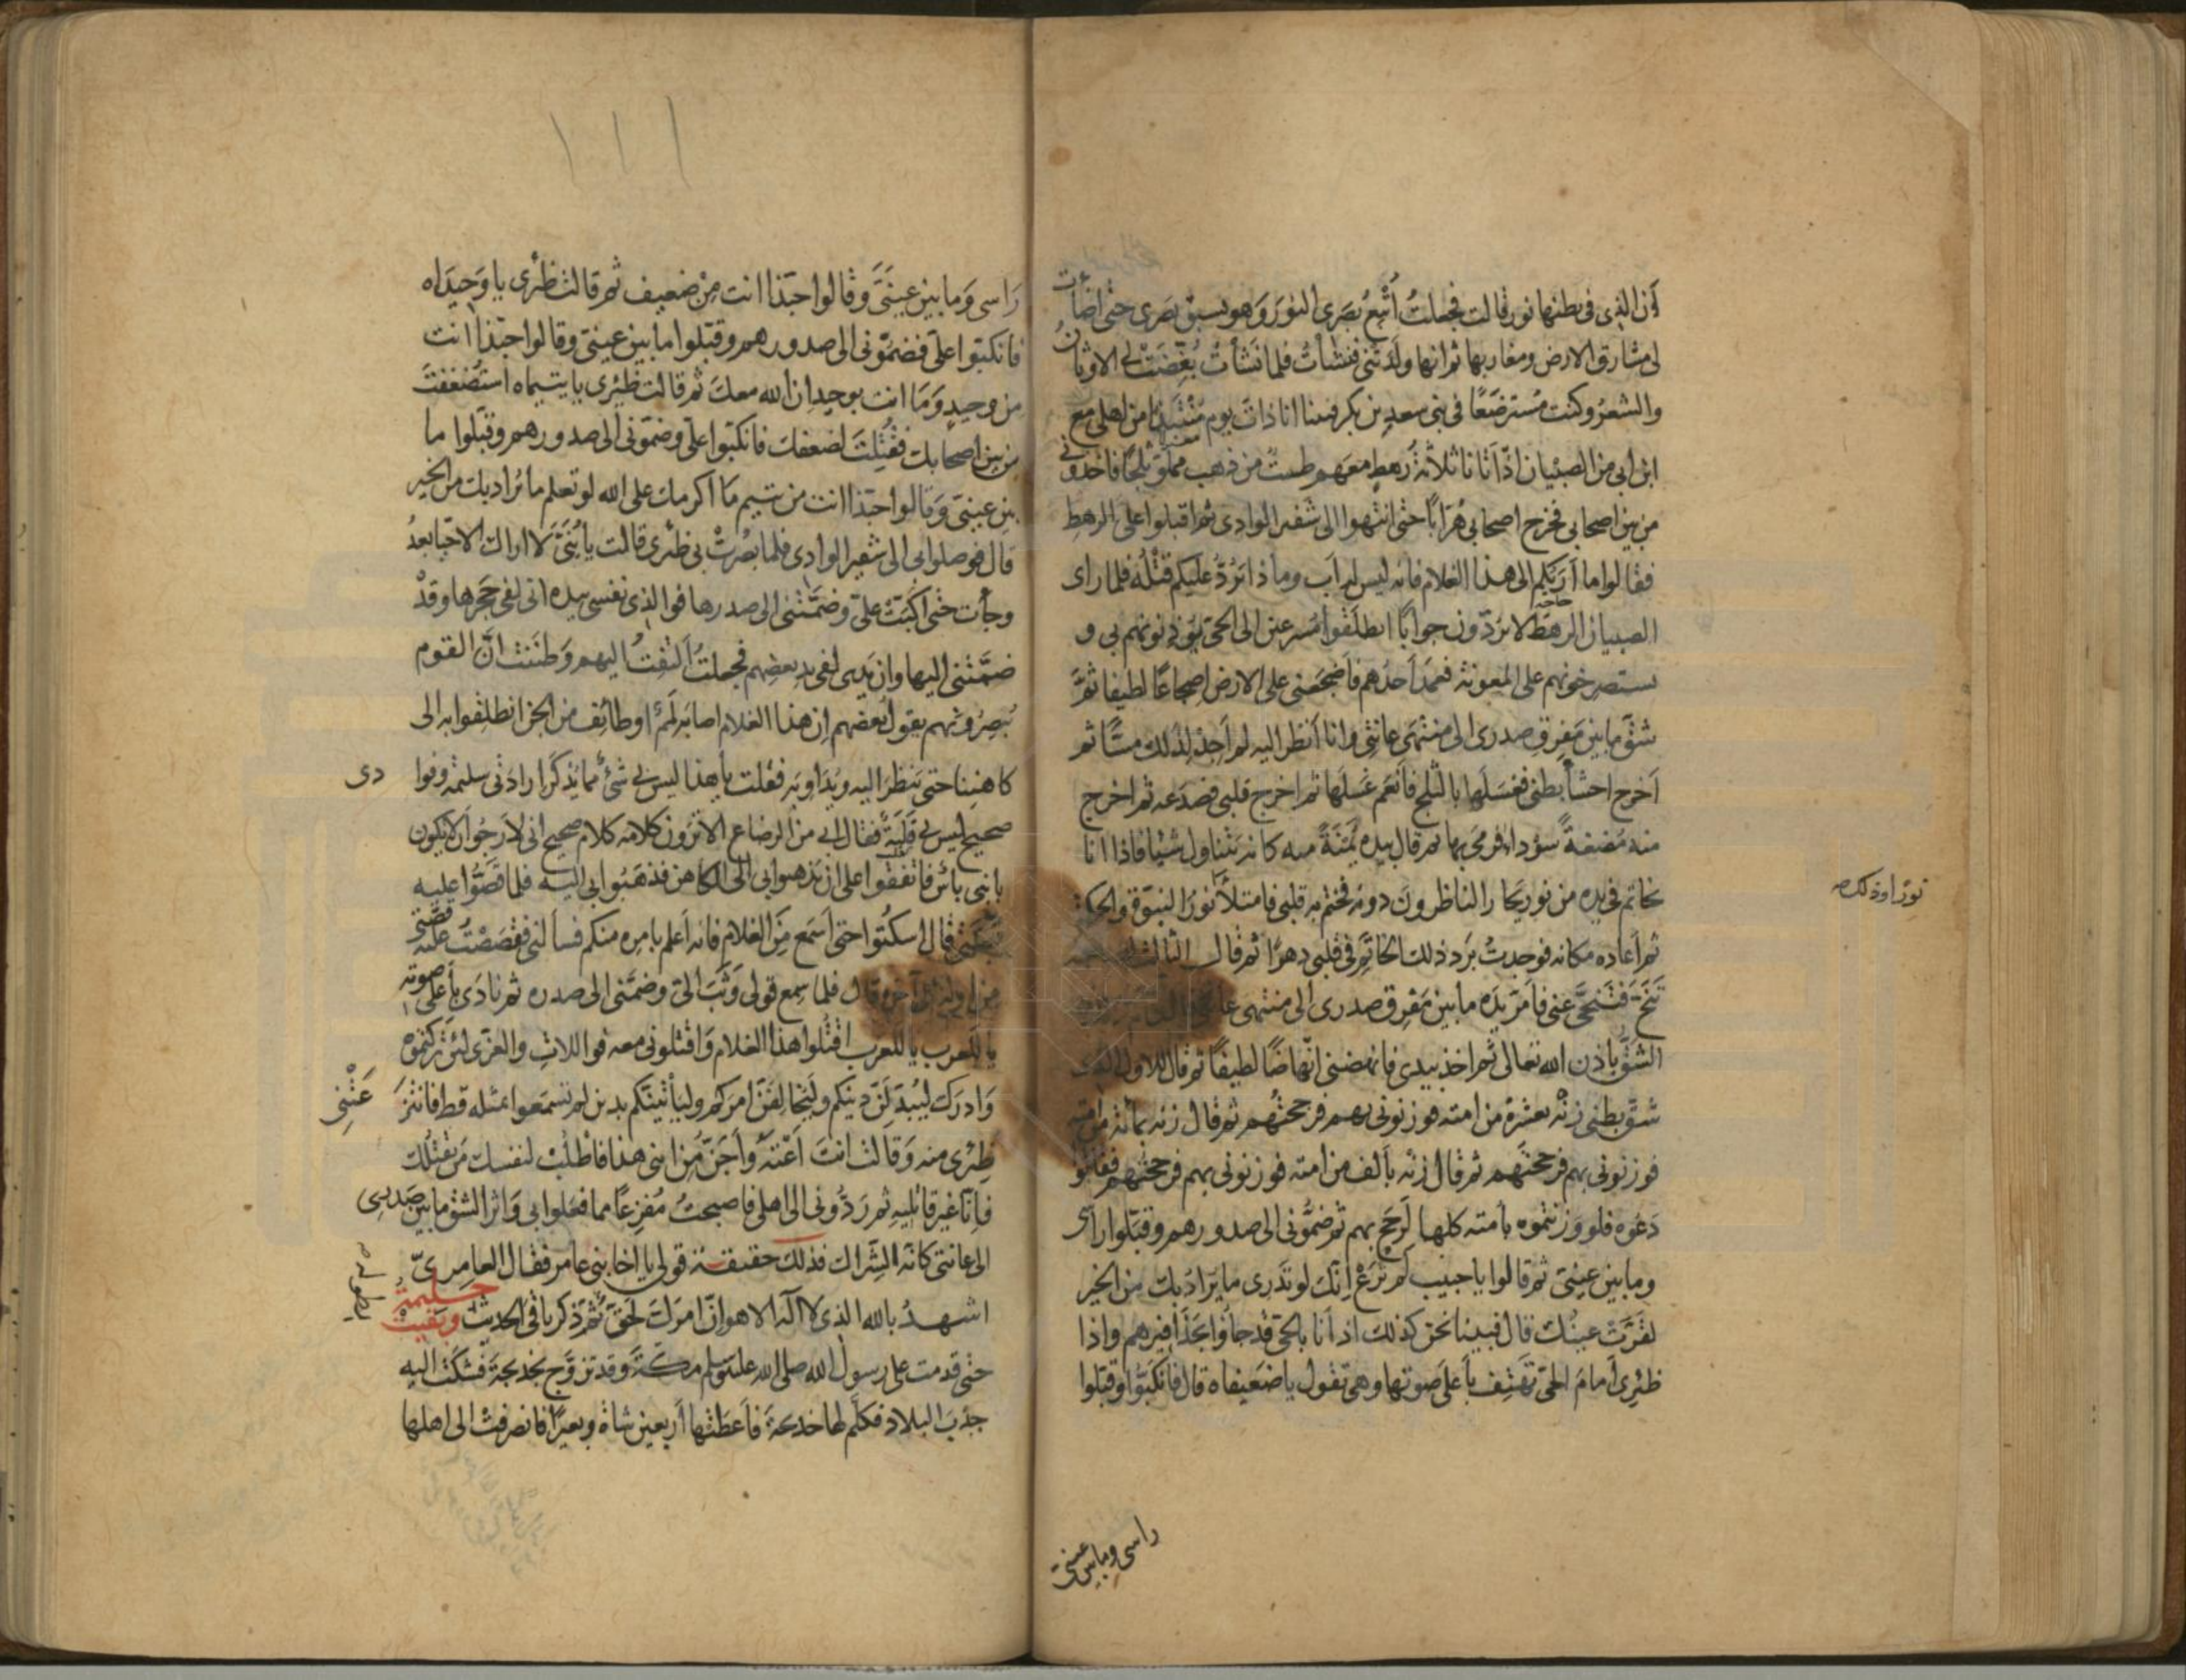 أن الذي في بطنها نور قالت فجعلتُ أُتْبِعُ بَصَري النورَ وَهو يسبق بَصَري حتى اضأت
لي مشارق الارض ومغاربها ثم انها ولَدَتني فنشأتُ فلما نَشأتُ بُغِّضَتْ لي الاوثانُ
والشعرُ وكنت مُسترضَعًا في بني سعد بن بكر فبينا انا ذاتَ يوم مُنْتَبِذًا من اهلي مع
اتراب لي من الصبيان اذا أتانا ثلاثةُ رهطٍ معهم طستٌ من ذهب مملوّ ثلجًا فاخذوني
من بين اصحابي فخرج اصحابي هُرّابًا حتى انتهوا الى شفير الوادي ثم اقبلوا على الرهط
فقالوا ما أرَبُكم الى هذا الغلام فانه ليس له اب وما ذا يَرُدُّ عليكم قَتْلُه فلما راى
الصبيان الرهط لا يردّون جوابًا انطلقوا مُسرعين الى الحيّ يؤذنونهم بي و
يستصرخونهم على المعونة فعمَدَ أحدُهم فأضجعني على الارض اضجاعًا لطيفا ثمَّ
شقّ ما بين مَفرِق صدري الى منتهَى عانتي وانا أنظر اليه لم أجِدْ لِذٰلك مسًّا ثم
أخرج احشأ بطني فغسَلَها بالثلج فأنعَم غَسلَها ثم اخرج قلبي فصَدَعه ثم اخرج
منه مُضغةً سوداء فرمى بها ثم قال بيده يَمْنَةً منه كانه يَتناول شيئا فاذا انا
بخاتم في يده من نور يَحار الناظرونَ دونه فختم به قلبي فامتلأ نورًا لنبوة والحكمة
نورًا وذلك صح
ثم أعاده مكانه فوجدتُ بَردَ ذلك الخاتَمِ في قلبي دهرًا ثم قال الثالث لصاحبه
تَنَحَّ فَتَنَحَّى عني فأمَرّ يدَه ما بين مَفْرِق صدري الى منتهى عانتي
الشَقُّ باذن الله تعالى ثم اخذ بيدي فانهضني انهاضًا لطيفًا ثم قال للاول الذي
شقّ بطني زِنْه بعشرةٍ من امته فوزنوني بهم فرجحتُهم ثم قال زنه بمائة من امته
فوزنوني بهم فرجحتُهم ثم قال زِنْه بألف من امته فوزنوني بهم فرجحتهم فقالوا
دَعُوه فلو وزنتموه بأمته كلها لرجح بهم ثم ضمّوني الى صدورهم وقبّلوا رأسي
وما بين عينيّ ثم قالوا يا حبيب لم تُرَعْ إنّك لو تَدري ما يُرادُ بك من الخير
لقرَّت عيناك قال فبينا نحن كذلك اذ أنا بالحيّ قد جاؤا بحذافيرهم واذا
ظئري أمامَ الحيّ تَهتِف بأعلى صوتها وهي تقول يا ضَعيفاه قال فانكبّوا وقبّلوا
راسي وما بين عينيّ
راسي وَما بين عينَيَّ وقالوا حبّذا انت مِنْ ضعيف ثم قالت ظئري يا وَحيدَاه
فانكبّوا عليّ فضمّوني الى صدورهم وقبّلوا ما بين عينيّ وقالوا حبّذا انت
من وحيدٍ وَمَا انت بوحيدٍ ان الله معكَ ثم قالت ظئري يا يتيماه استُضعِفتَ
من بين اصحابك فقُتِلتَ لضعفك فانكبّوا عليّ وضمّوني الى صدورهم وقبّلوا ما
بين عينيّ وَقالوا حبّذا انت من يتيم مَا اكرمك على الله لو تعلم ما يُراد بك من الخير
قال فوصلوا بي الى شفير الوادي فلما بَصُرتْ بي ظئري قالت يا بُنَيَّ لا اراك الا حيّا بعدُ
وجأت حتى أكبّت عليّ وضمَّتْني الى صدرها فوالذي نفسي بيده اني لفي حَجْرها وقدْ
ضمَّتْني اليها وان يَدي لفي يدِ بعضهم فجعلتُ ألتفتُ اليهم وَظننت انَّ القوم
يُبصِرُونهم يقول بَعضهم إن هذا الغلام اصابه لَمَمٌ او طائف من الجن انطلِقوا به الى
كاهننا حتى يَنظرَ اليه ويُدَاويَه فقلت يا هذا ليس بي شئٌ مما يُذكَر ارادَتي سليمة وفوا
دى
صحيح ليس بي قَلَبَة فقال ابي من الرضاع الا ترَون كلامه كلام صحيح اني لارجُوا ان لا يكون
بابني بأس فاتفقوا على ان يَذهبوا بي الى الكاهن فذهَبُوا بي اليه فلما قصّوا عليه
قصّتي قال اسكُتوا حتى أسمَع مِنَ الغلام فانه أعلم بامره منكم فسألني فقصَصْتُ عليه
من اوله الى آخره قال فلما سمع قولي وَثَبَ اليّ وضمّني الى صدره ثم نادَى بأعلى صوته
يا للعرب يا للعرب اقتُلوا هذا الغلام وَاقتلوني معه فواللاتِ والعزّى لئن تركتموه
وَادرك ليُبدِّلَنّ دينكم وليُخالفَنّ امركم وليأتينّكم بدين لم تسمَعوا بمثله قط فانتزَ
عَتْنِي
ظِئري منه وَقالت انتَ أعْتَهُ وأجَنُّ مِن ابني هذا فاطلُبْ لنفسك مَن يقتُلك
فإنّا غير قاتليه ثم رَدُّوني الى اهلي فاصبحتُ مُفزعًا مما فعَلوا بي وَاثر الشق ما بين صَدري
الى عانتي كانّه الشِراك فذلك حقيقة قولي يا اخا بني عامر فقال العامريّ
اشهدُ بالله الذي لا آله الا هو انّ امرَك لحقّ ثُمّ ذكر باقيَ الحديث وبَقيتْ حليمةُ
حتى قدمت على رسول الله صلى الله عليه وسلم مكّةَ وقد تزوّج بخديجةَ فشكَت اليه
جدب البلاد فكلّم لها خديجة فأعطتْها أربعين شاة وبعيرًا فانصرفتْ الى اهلها